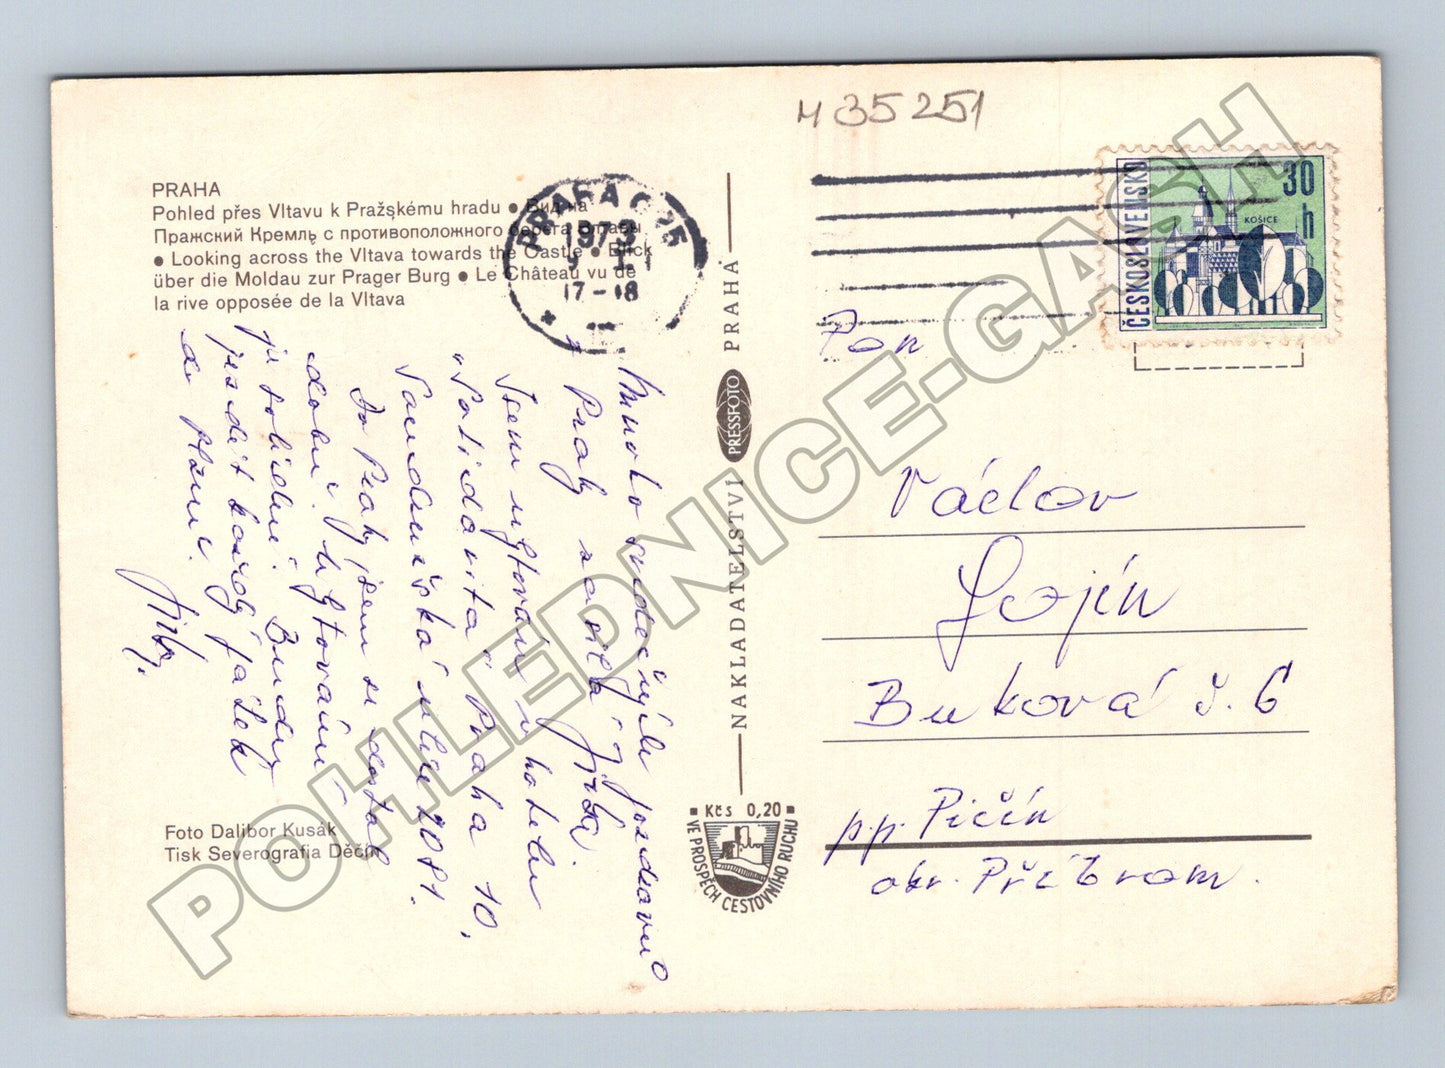 M 35251
PRAHA
Pohled přes Vltavu k Pražskému hradu ● Вид на
Пражский Кремль с противоположного берега Влтавы
● Looking across the Vltava towards the Castle ● Blick
über die Moldau zur Prager Burg ● Le Château vu de
la rive opposée de la Vltava
PRAHA 025
1979
17-18
ČESKOSLOVENSKO
30 h
KOŠICE
Pan
Václav
Gojín
Buková č. 6
p.p. Pičín
okr. Příbram.
Mnoho srdečných pozdravů
z Prahy zasílá Jirka.
Jsem ubytován v hotelu
"Solidarita" Praha 10,
Soudružská ulice 2081.
Do Prahy jsem se dostal
dobře. Ubytování
je solidní. Budu
jezdit každý pátek
do Plzně.
Jirka
NAKLADATELSTVÍ PRESSFOTO PRAHA
Foto Dalibor Kusák
Tisk Severografia Děčín
Kčs 0,20
VE PROSPĚCH CESTOVNÍHO RUCHU
POHLEDNICE-GASH